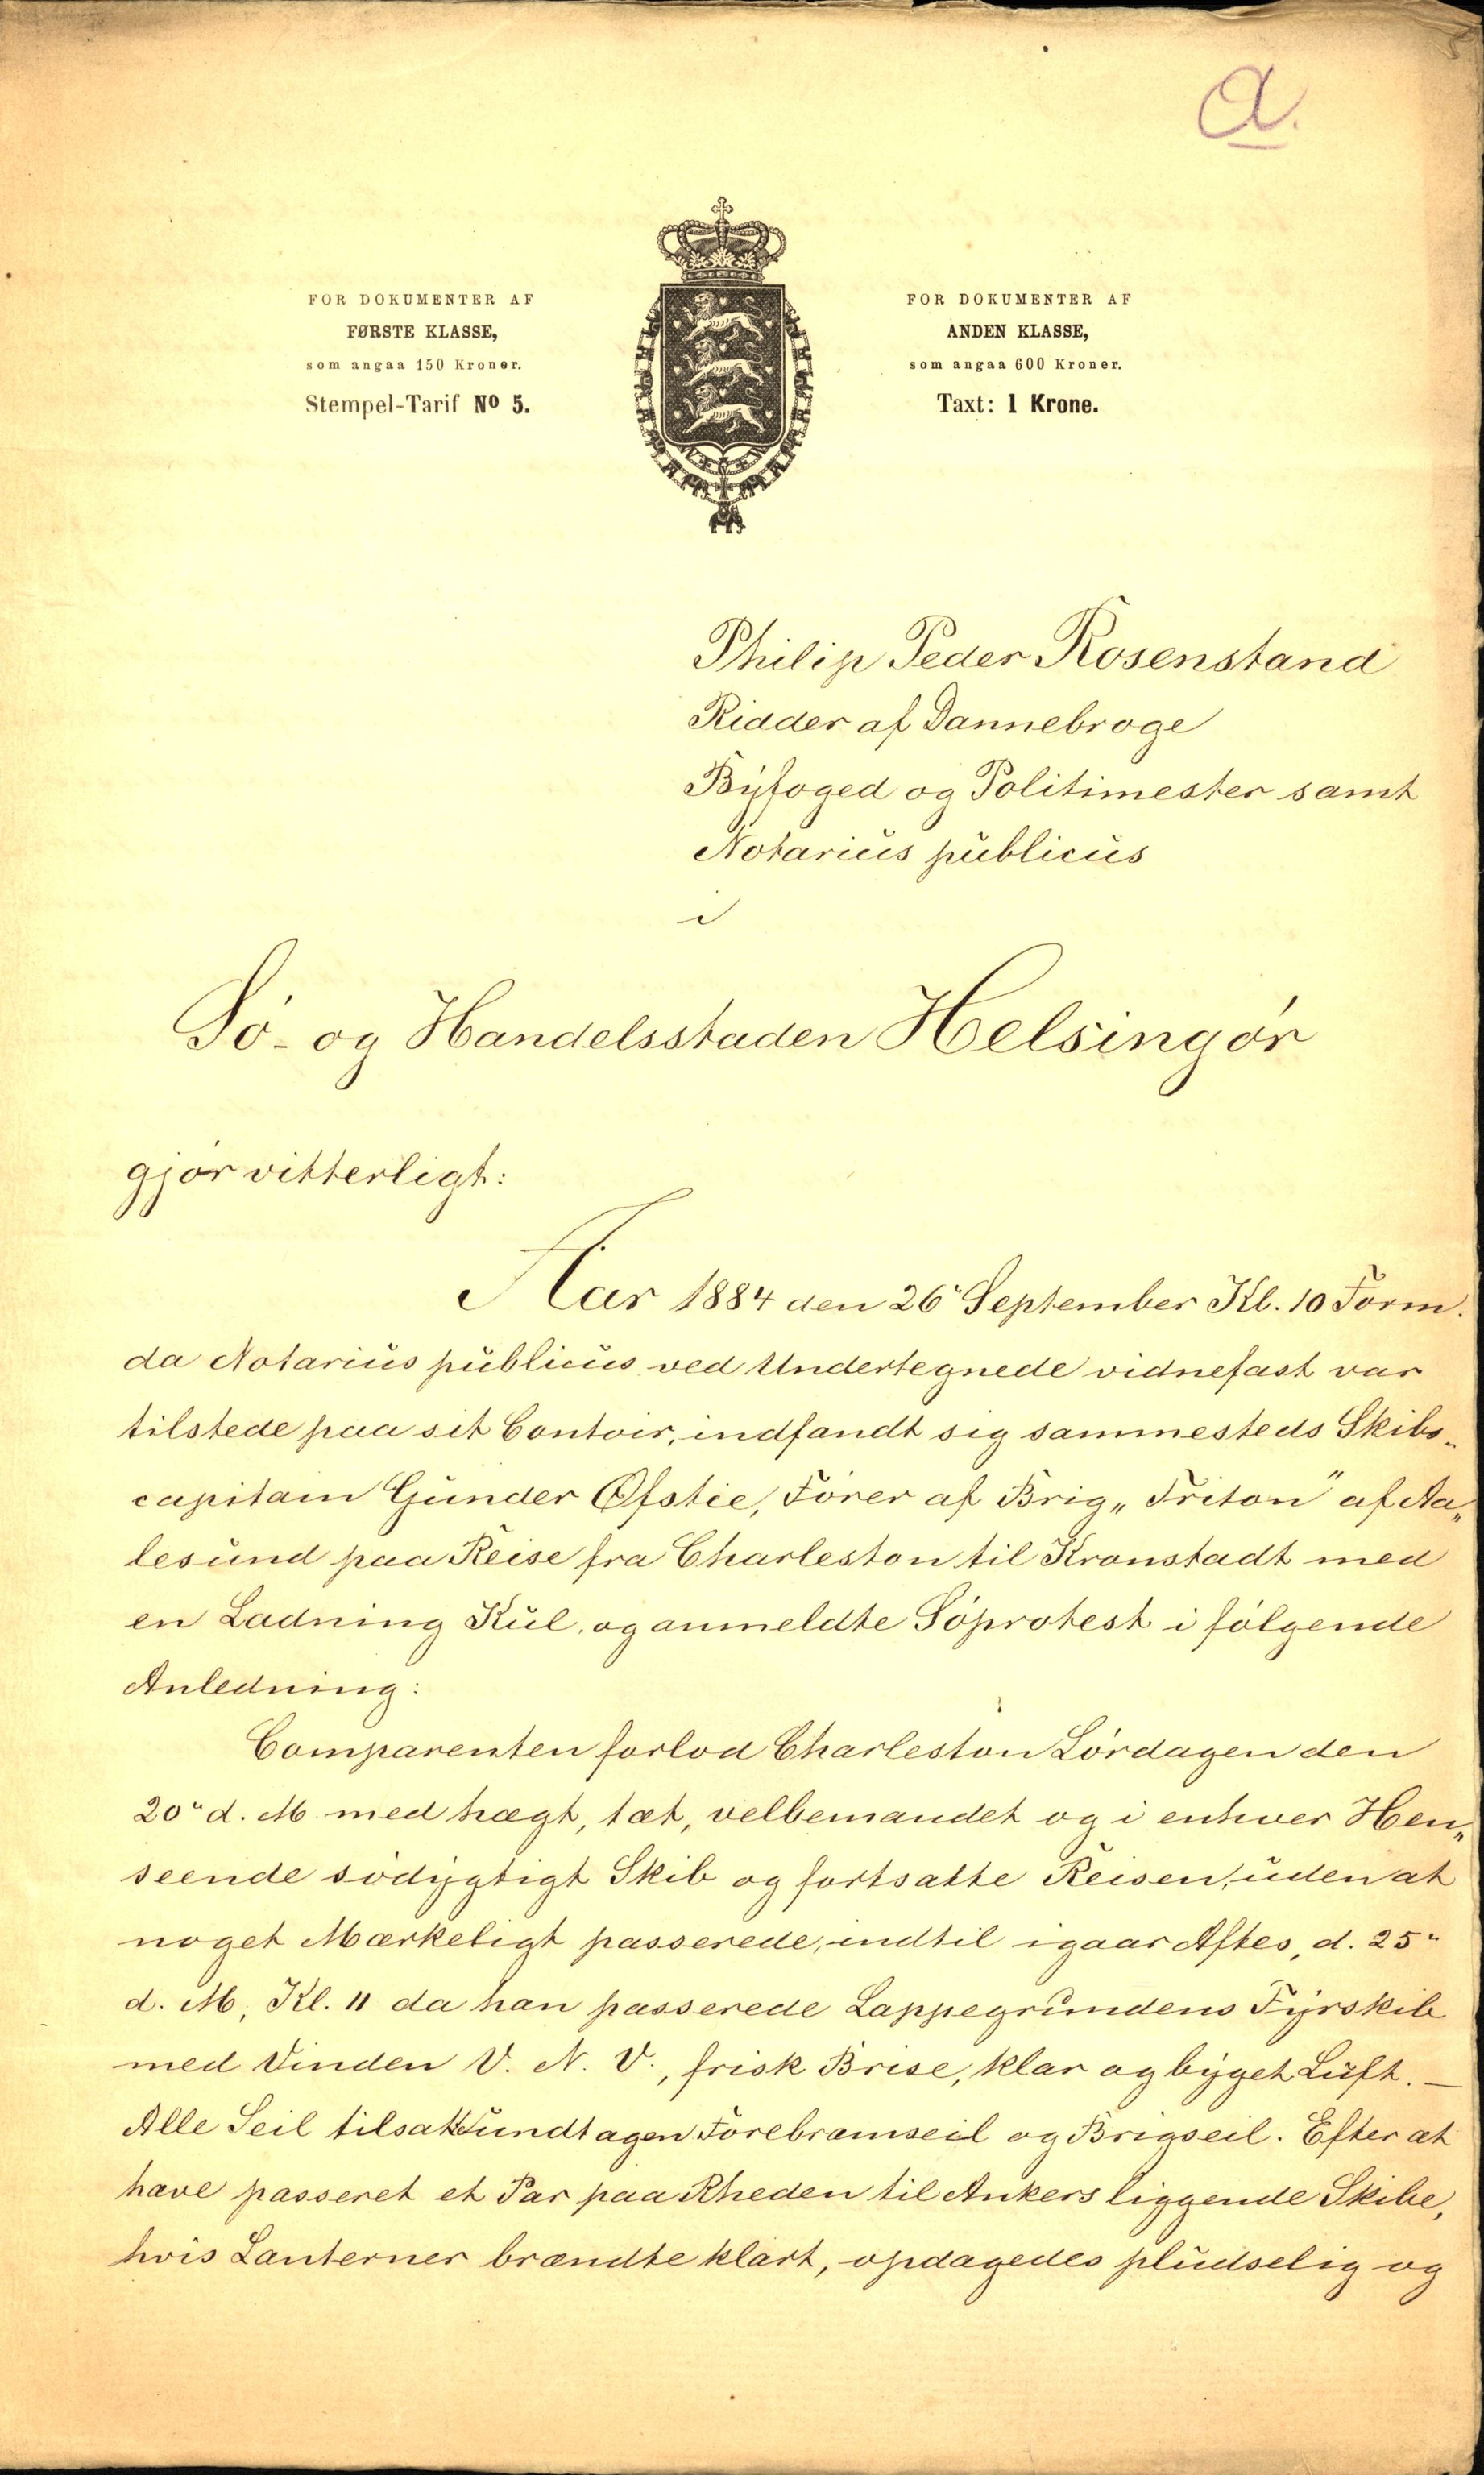 a.
FOR DOKUMENTER AF
FØRSTE KLASSE,
som angaa 150 Kroner.
Stempel-Tarif No 5.
FOR DOKUMENTER AF
ANDEN KLASSE,
som angaa 600 Kroner.
Taxt: 1 Krone.
Philip Peder Rosenstand
Ridder af Dannebroge
Byfoged og Politimester samt
Notarius publicus
i
Sø- og Handelsstaden Helsingør
gjør vitterligt:
Aar 1884 den 26' September Kl. 10 Form.
da Notarius publicus ved Undertegnede vidnefast var
tilstede paa sit Contoir, indfandt sig sammesteds Skibs-
capitain Gunder Øfstie, Fører af Brig „Triton" af Aa„
lesund paa Reise fra Charleston til Kronstadt med
en Ladning Kul, og anmeldte Søprotest i følgende
Anledning:
Comparenten forlod Charleston Lørdagen den
20" d. M med tæt, velbemandet og i enhver Hen„
seende sødygtigt Skib og fortsatte Reisen, uden at
noget Mærkeligt passerede, indtil igaar Aftes, d. 25"
d. M, Kl. 11 da han passerede Lappegrundens Fyrskib
med Vinden V. N. V., frisk Brise, klar og byget Luft. —
Alle Seil tilsatte undtagen Forebramseil og Brigseil. Efter at
have passeret et Par paa Rheden til Ankers liggende Skibe,
hvis Lanterner brændte klart, opdagedes pludselig og